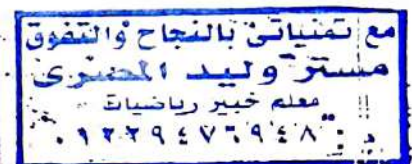 مع تمنياتى بالنجاح والتفوق
مستر وليد المصرى
معلم خبير رياضيات
د : ٠١٢٢٩٤٧٦٩٤٨